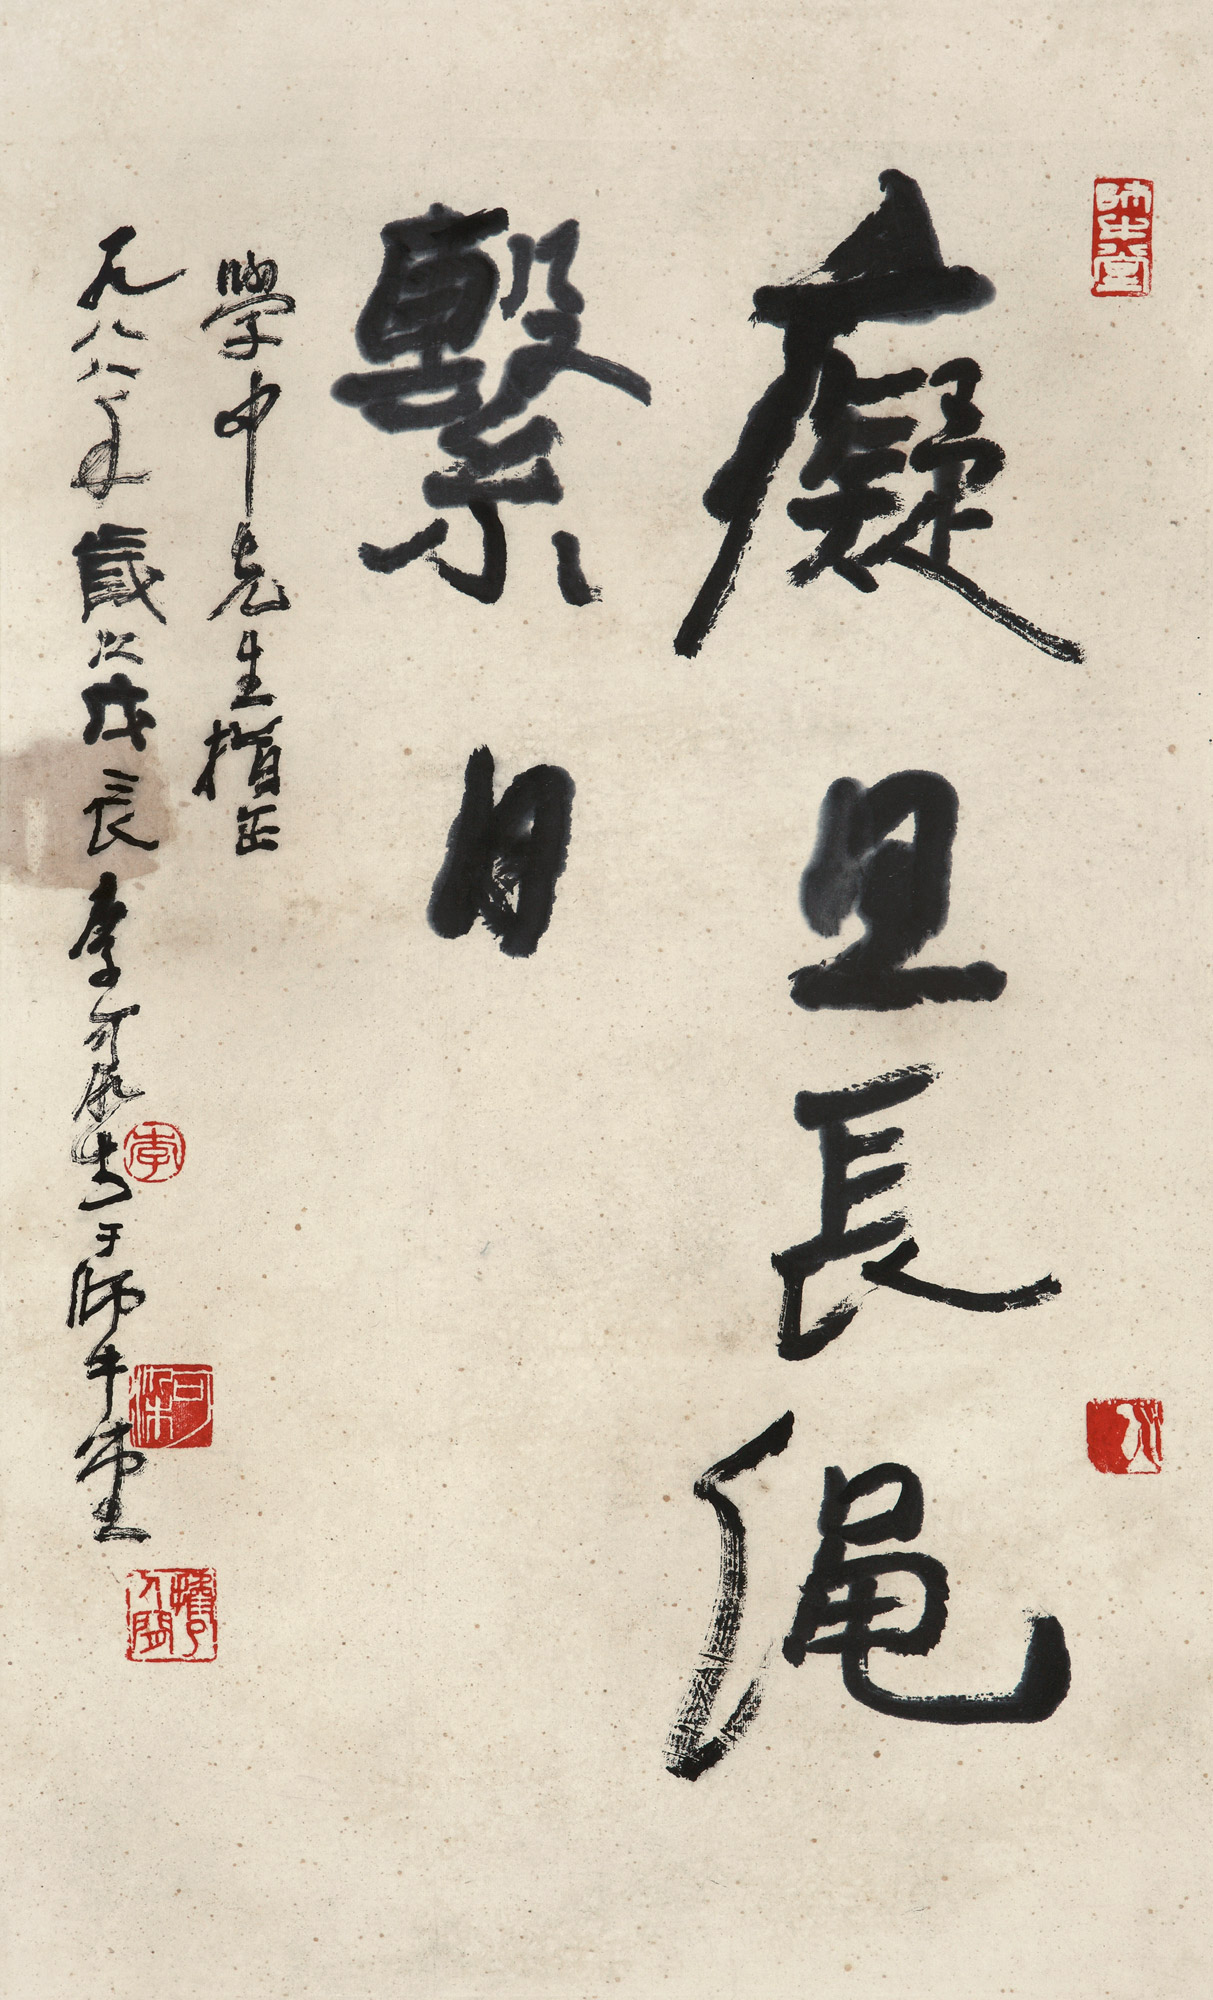 師牛堂
癡旦長繩
繫日
學中先生指正
一九八八年歲次戊辰李可染書于師牛堂
李
可染